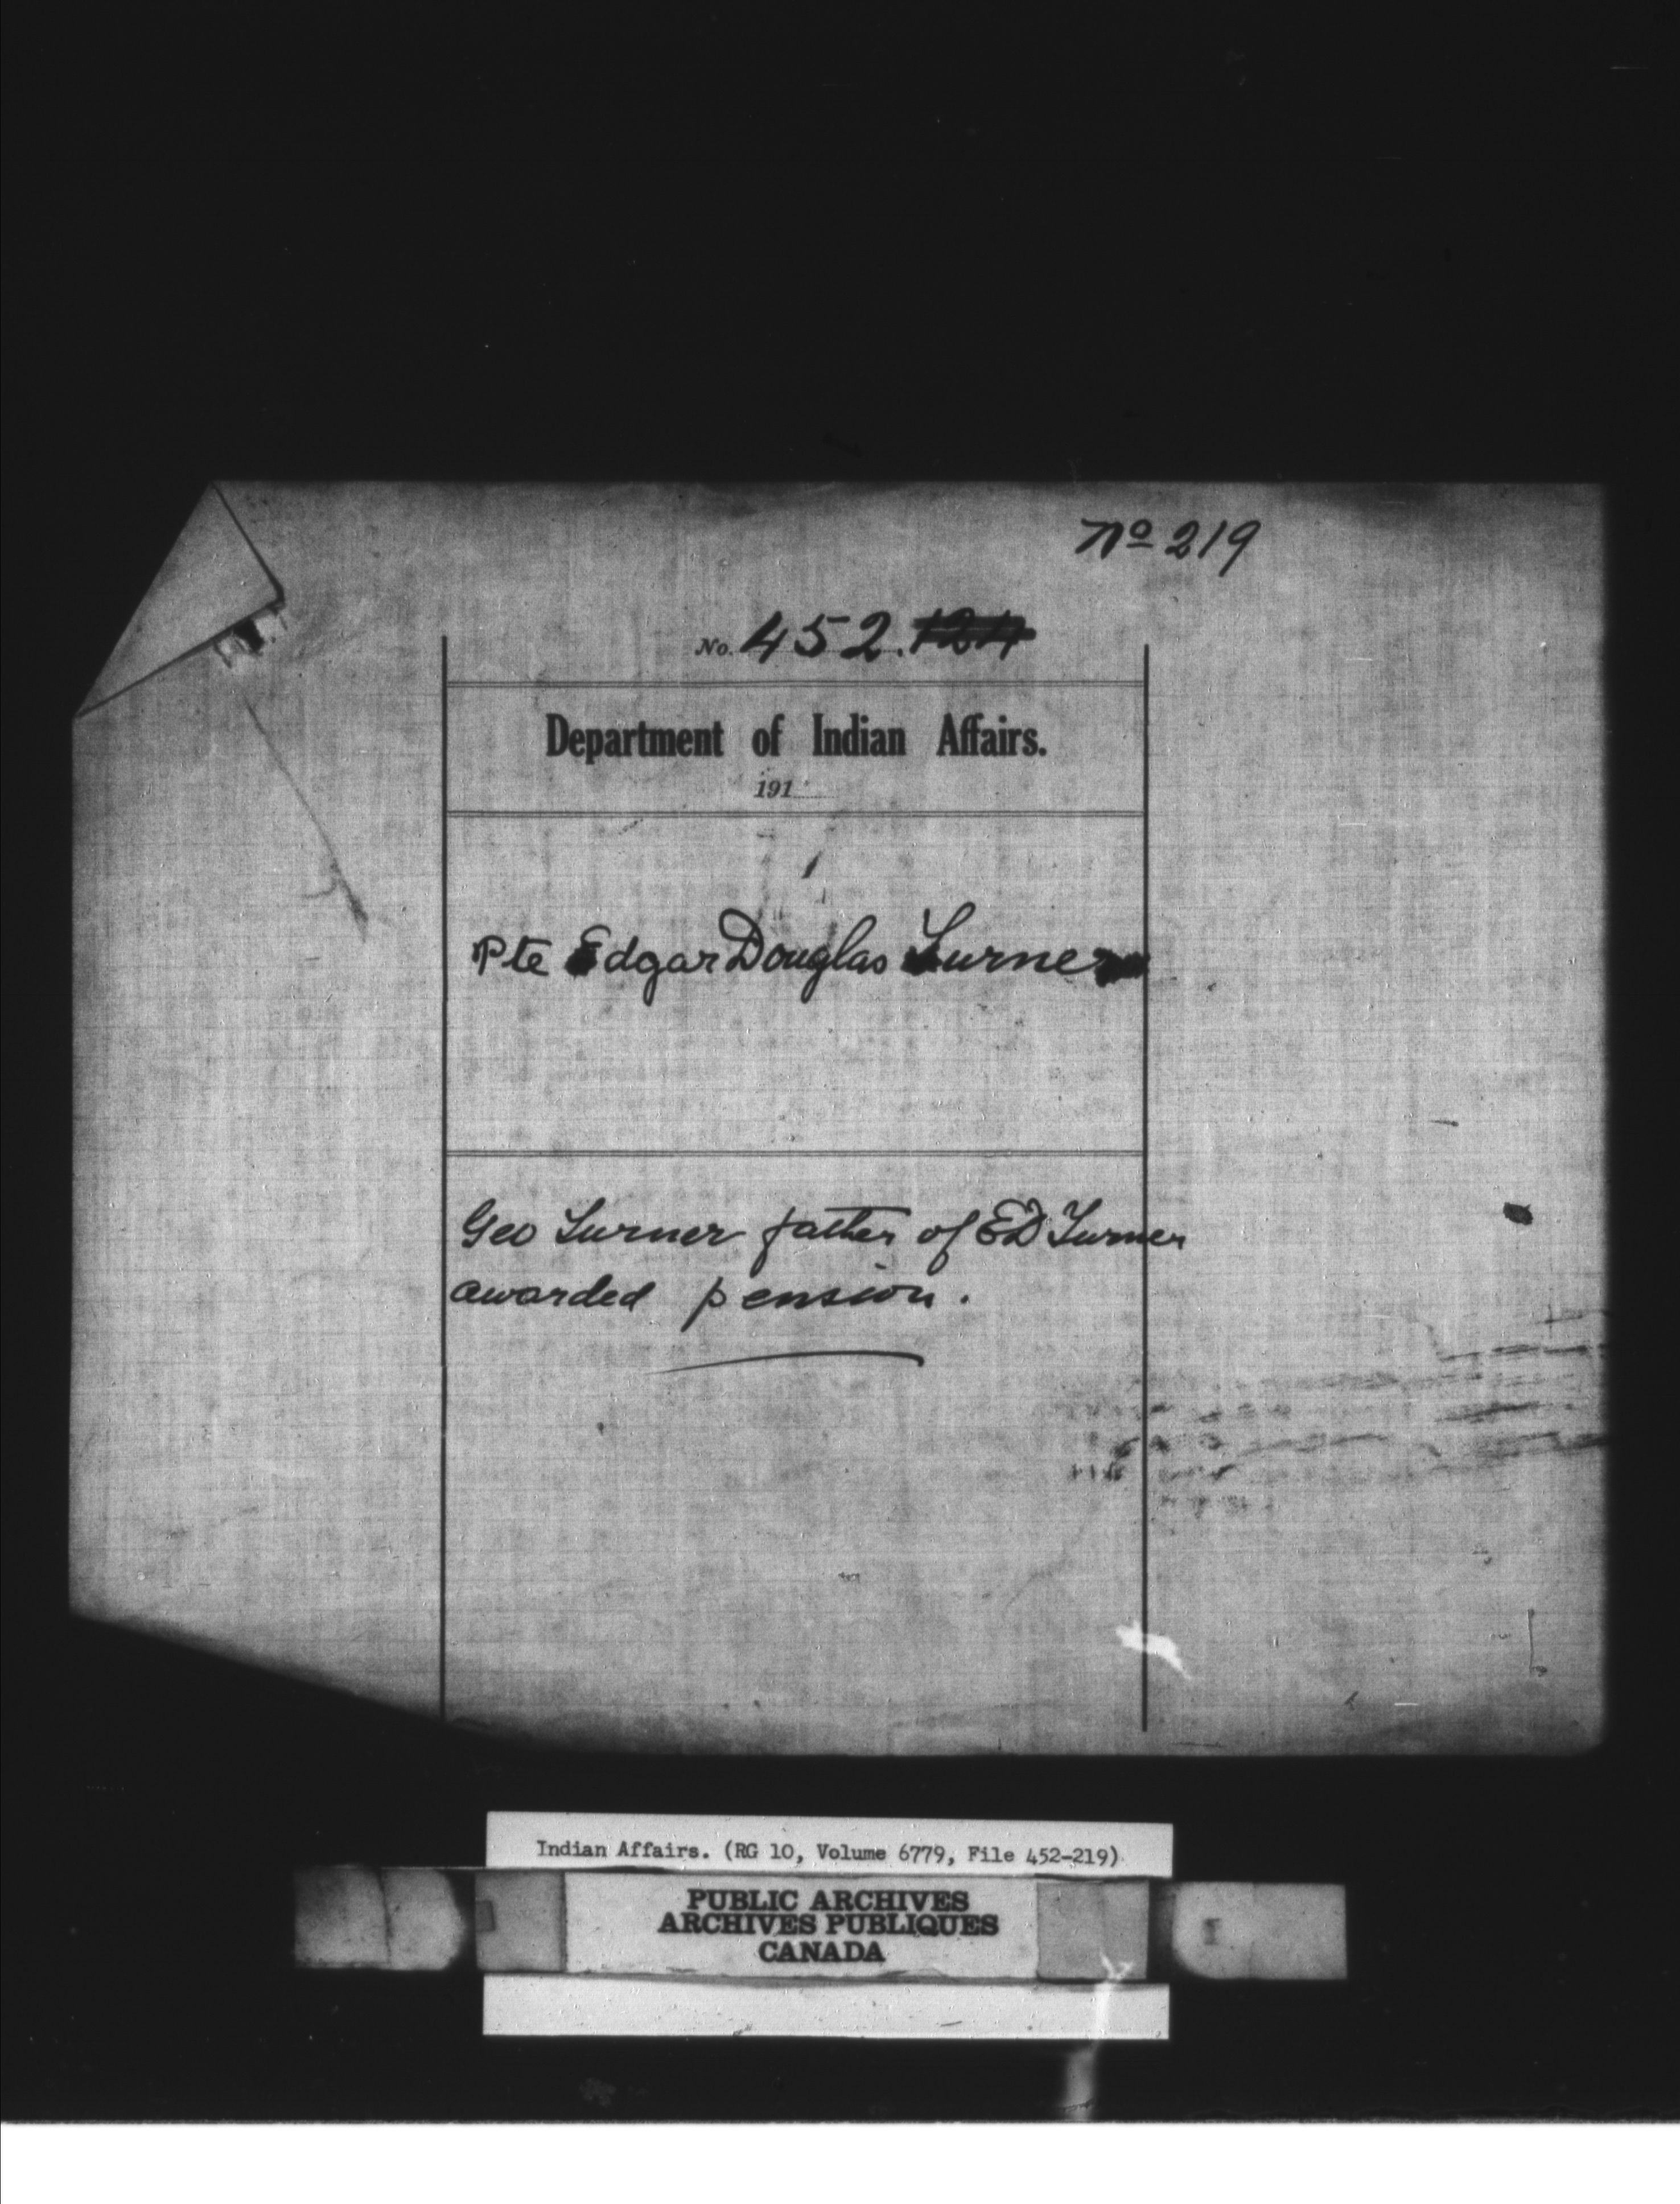 No 219
No. 452.124
Department of Indian Affairs.
191
Pte Edgar Douglas Turner
Geo Turner father of ED Turner
awarded pension.
Indian Affairs. (RG 10, Volume 6779, File 452-219)
PUBLIC ARCHIVES
ARCHIVES PUBLIQUES
CANADA